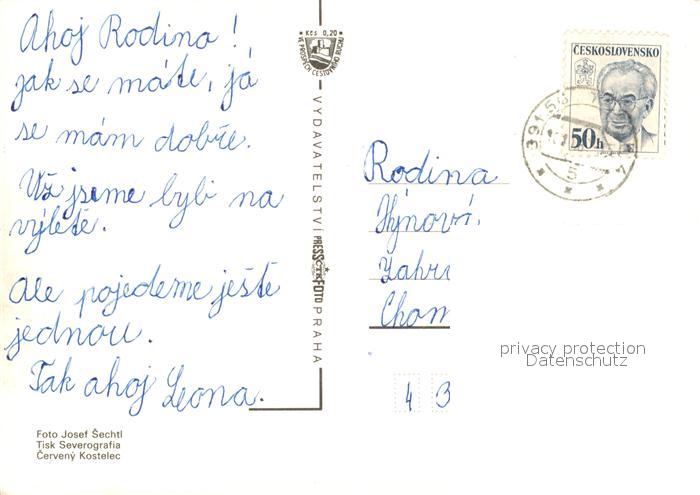 Ahoj Rodino!
jak se máte, já
se mám dobře.
Už jsme byli na
výletě.
Ale pojedeme ještě
jednou.
Tak ahoj Leona.
Foto Josef Šechtl
Tisk Severografia
Červený Kostelec
Kčs 0,20
VE PROSPĚCH CESTOVNÍHO RUCHU
VYDAVATELSTVÍ PRESSFOTO PRAHA
ČESKOSLOVENSKO
50h
391 56
4
5
Rodina
Hýnovi,
Zahr
Chom
4 3
privacy protection
Datenschutz